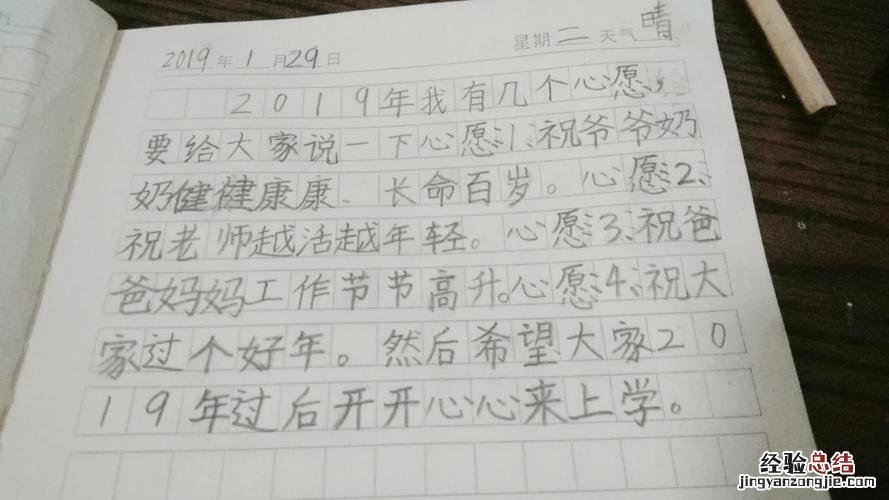 2019年1月29日 星期二 天气晴
2019年我有几个心愿，
要给大家说一下心愿1、祝爷爷奶
奶健健康康、长命百岁。心愿2、
祝老师越活越年轻。心愿3、祝爸
爸妈妈工作节节高升。心愿4、祝大
家过个好年。然后希望大家20
19年过后开开心心来上学。
经验总结
jingyanzongjie.com